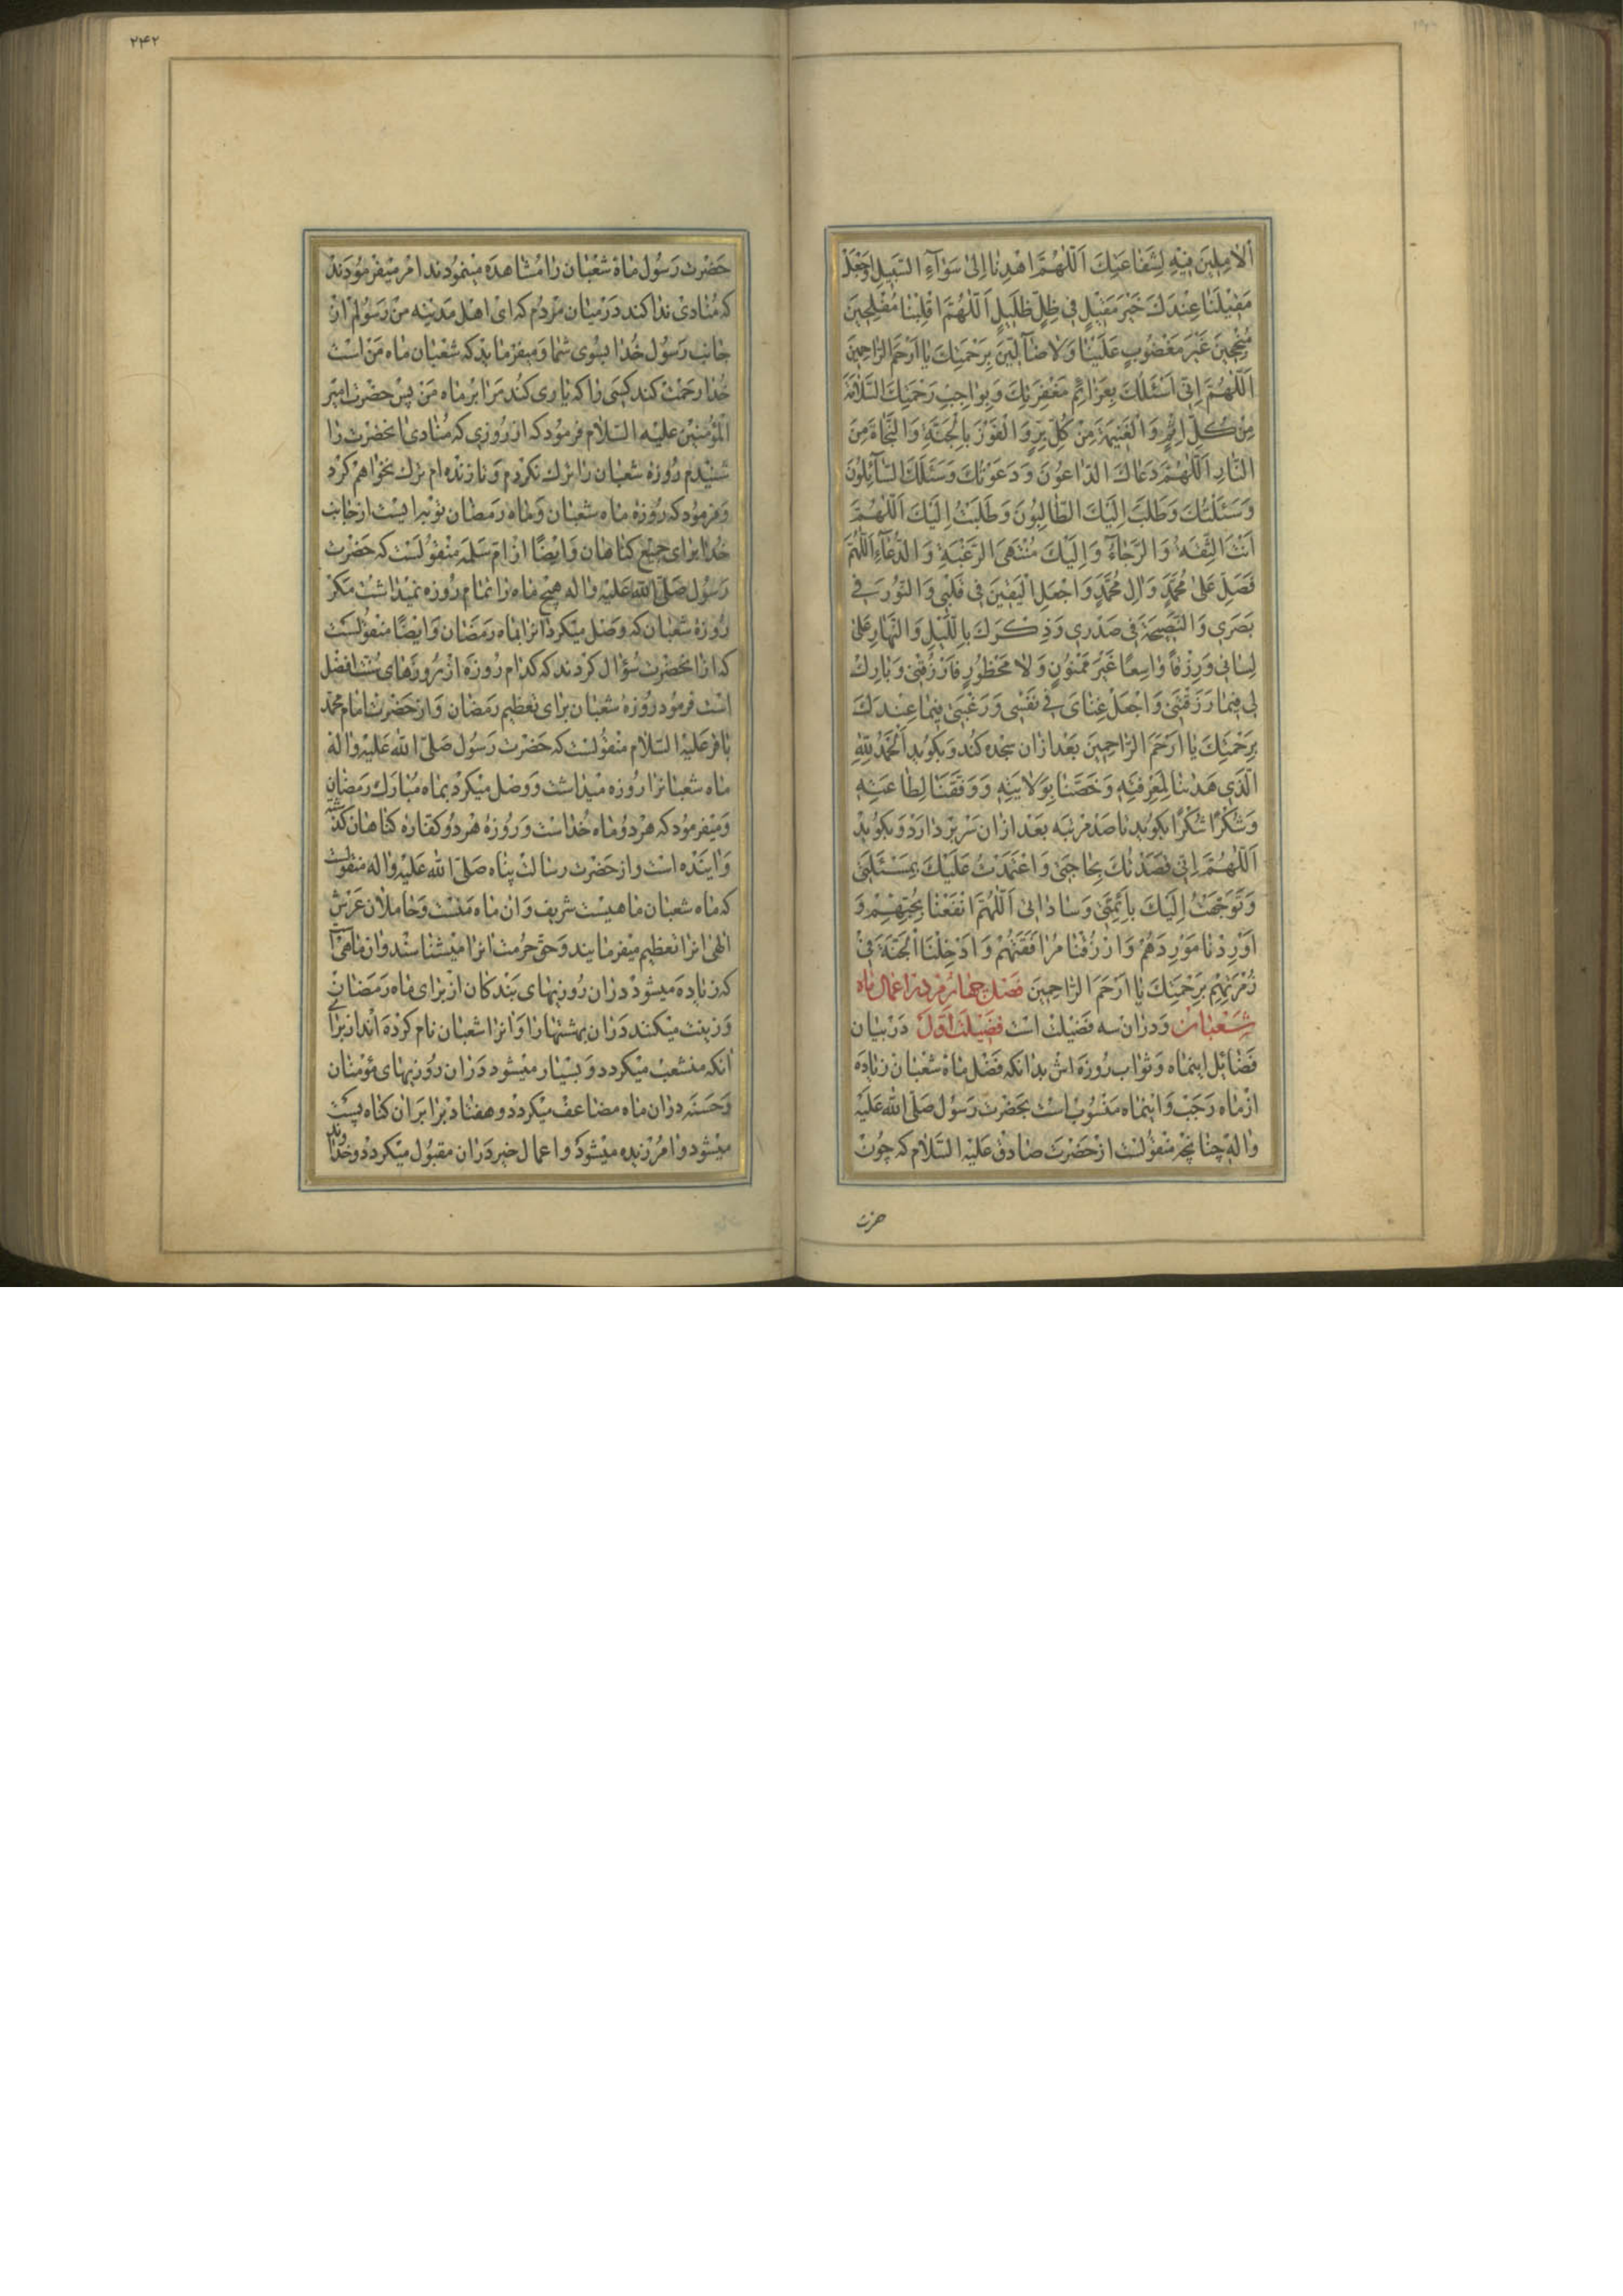 اَلْامِلِينَ فِيهِ لِشَفاعَتِكَ اَللّٰهُمَّ اهْدِنا اِلىٰ سَوآءِ السَّبيلِ وَاجْعَلْ
مَقيلَنا عِنْدَكَ خَيْرَ مَقيلٍ في ظِلٍّ ظَليلٍ اَللّٰهُمَّ اقْلِبْنا مُفْلِحينَ
مُنْجِحينَ غَيْرَ مَغْضُوبٍ عَلَيْنا وَلا ضآلّينَ بِرَحْمَتِكَ يا اَرْحَمَ الرّاحِمينَ
اَللّٰهُمَّ اِنّي اَسْئَلُكَ بِعَزآئِمِ مَغْفِرَتِكَ وَبِواجِبِ رَحْمَتِكَ السَّلامَةَ
مِنْ كُلِّ اِثْمٍ وَالْغَنيمَةَ مِنْ كُلِّ بِرٍّ وَالْفَوْزَ بِالْجَنَّةِ وَالنَّجاةَ مِنَ
النّارِ اَللّٰهُمَّ دَعاكَ الدّاعُونَ وَدَعَوْتُكَ وَسَئَلَكَ السّآئِلُونَ
وَسَئَلْتُكَ وَطَلَبَ اِلَيْكَ الطّالِبُونَ وَطَلَبْتُ اِلَيْكَ اَللّٰهُمَّ
اَنْتَ الثِّقَةُ وَالرَّجآءُ وَاِلَيْكَ مُنْتَهَى الرَّغْبَةِ وَالدُّعآءِ اَللّٰهُمَّ
فَصَلِّ عَلىٰ مُحَمَّدٍ وَآلِ مُحَمَّدٍ وَاجْعَلِ الْيَقينَ في قَلْبي وَالنُّورَ في
بَصَري وَالنَّصيحَةَ في صَدْري وَذِكْرَكَ بِاللَّيْلِ وَالنَّهارِ عَلىٰ
لِساني وَرِزْقًا واسِعًا غَيْرَ مَمْنُونٍ وَلا مَحْظُورٍ فَارْزُقْني وَبارِكْ
لي فيما رَزَقْتَني وَاجْعَلْ غِنايَ في نَفْسي وَرَغْبَتي فيما عِنْدَكَ
بِرَحْمَتِكَ يا اَرْحَمَ الرّاحِمينَ بعد ازان سجده کند و بکوید اَلْحَمْدُ لِلّٰهِ
الَّذي هَدٰىنا لِمَعْرِفَتِهِ وَخَصَّنا بِوَلايَتِهِ وَوَفَّقَنا لِطاعَتِهِ
و شُکْرًا شُکْرًا بکوید تا صد مرتبه بعد ازان سر بر دارد و بکوید
اَللّٰهُمَّ اِنّي قَصَدْتُكَ بِحاجَتي وَاعْتَمَدْتُ عَلَيْكَ بِمَسْئَلَتي
وَتَوَجَّهْتُ اِلَيْكَ بِاَئِمَّتي وَساداتي اَللّٰهُمَّ انْفَعْنا بِحُبِّهِمْ وَ
اَوْرِدْنا مَوْرِدَهُمْ وَارْزُقْنا مُرافَقَتَهُمْ وَاَدْخِلْنَا الْجَنَّةَ في
زُمْرَتِهِمْ بِرَحْمَتِكَ يا اَرْحَمَ الرّاحِمينَ فصل چهارم در اعمال ماه
شعبان و دران سه فضیلت است فضیلت اول در بیان
فضائل اینماه و ثواب روزه اش بدانکه فضل ماه شعبان زیاده
از ماه رجب و اینماه منسوب است بحضرت رسول صلی الله علیه
واله چنانچه منقولست از حضرت صادق علیه السلام که چون
حضرت
۲۴۲
حضرت رسول ماه شعبان را مشاهده مینمودند امر میفرمودند
که منادی ندا کند در میان مردم که ای اهل مدینه من رسولم از
جانب رسول خدا بسوی شما و میفرماید که شعبان ماه من است
خدا رحمت کند کسی را که یاری کند مرا بر ماه من پس حضرت امیر
المؤمنین علیه السلام فرمود که از روزی که منادی انحضرت را
شنیدم روزه شعبان را ترک نکردم و تا زنده ام ترک نخواهم کرد
و فرمود که روزه ماه شعبان و ماه رمضان توبه ایست از جانب
خدا برای جمیع کناهان و ایضًا از ام سلمه منقولست که حضرت
رسول صلی الله علیه واله هیچ ماه را تمام روزه نمیداشت مکر
روزه شعبان که وصل میکرد انرا بماه رمضان و ایضًا منقولست
که از انحضرت سؤال کردند که کدام روزه از روزهای سنت افضل
است فرمود روزه شعبان برای تعظیم رمضان و از حضرت امام محمد
باقر علیه السلام منقولست که حضرت رسول صلی الله علیه واله
ماه شعبانرا روزه میداشت و وصل میکرد بماه مبارک رمضان
و میفرمود که هر دو ماه خداست و روزه هر دو کفاره کناهان کذشته
و اینده است و از حضرت رسالت پناه صلی الله علیه واله منقولست
که ماه شعبان ماهیست شریف و ان ماه منست و حاملان عرش
الهی انرا تعظیم میفرمایند و حق حرمت انرا میشناسند و ان ماهی است
که زیاده میشود دران روزیهای بندکان از برای ماه رمضان
و زینت میکنند دران بهشتها را و انرا شعبان نام کرده اند از برای
انکه منشعب میکردد و بسیار میشود دران روزیهای مؤمنان
و حسنه دران ماه مضاعف میکردد و هفتاد برابر ان کناه پست
میشود و امرزیده میشود و اعمال خیر دران مقبول میکردد و خداوند